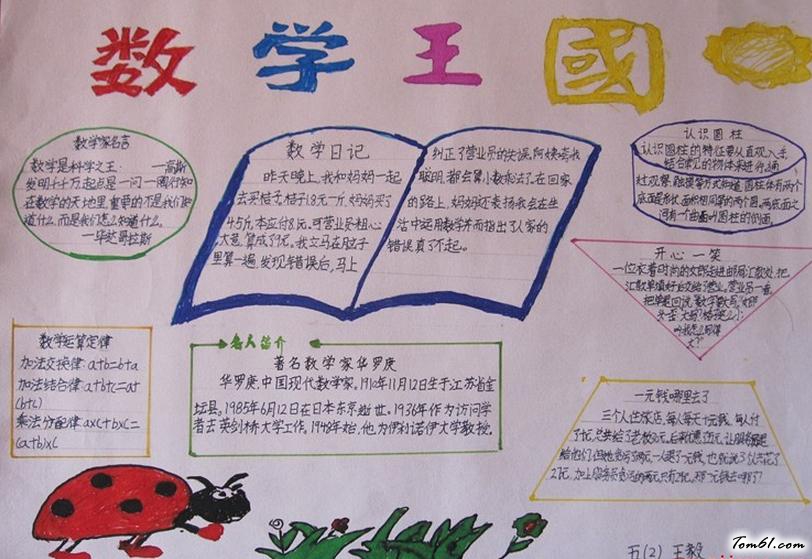 数学王國
数学家名言
数学是科学之王 一高斯
发明千千万起点是一问
在数学的天地里,重要的不是我们知
道什么,而是我们怎么知道什么。
一毕达哥拉斯
数学日记
昨天晚上,我和妈妈一起
去买桔子,桔子1.8元一斤,妈妈买了
4.5斤,本应付8.1元,可营业员粗心
大意,算成了9元。我立马在肚子
里算一遍,发现错误后,马上
纠正了营业员的失误,阿姨夸我
聪明,都会算小数乘法了,在回家
的路上,妈妈还表扬我会在生
活中运用数学,并而指出了人家的
错误,真了不起。
认识圆柱
认识圆柱的特征要从直观入手,
结合常见的物体来进行,通
过观察、触摸等方式知道:圆柱体有两个
底面是形状、面积相同等的两个圆,两底面之
间有一曲面叫圆柱的侧面。
开心一笑
一位衣着时尚的女郎走进邮局汇款处,把
汇款单填好后交给了营业,营业员一看,
把单退回说:数字数写
数学运算定律
加法交换律:a+b=b+a
加法结合律:a+b+c=a+
(b+c)
乘法分配律:a×c+b×c=
(a+b)×c
名人简介
著名数学家华罗庚
华罗庚,中国现代数学家。1910年11月12日生于江苏省金
坛县。1985年6月12日在日本东京逝世。1936年作为访问学
者去英剑桥大学工作。1948年始,他为伊利诺伊大学教授。
一元钱哪里去了
三个人住旅店,每人每天十元钱,每人付
了十元,总共给了老板30元,后来优惠5元,让服务员退
给他们,但她贪污了两元,一人退了一元钱,也就说3个人共花了
27元,加上服务员贪污的两元,只有29元,那一元钱去哪了?
五(2) 王毅
Tom61.com